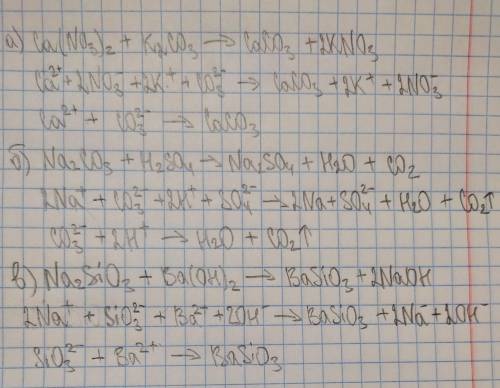 а) Ca(NO₃)₂ + K₂CO₃ → CaCO₃ + 2KNO₃
Ca²⁺ + 2NO₃⁻ + 2K⁺ + CO₃²⁻ → CaCO₃ + 2K⁺ + 2NO₃⁻
Ca²⁺ + CO₃²⁻ → CaCO₃
б) Na₂CO₃ + H₂SO₄ → Na₂SO₄ + H₂O + CO₂
2Na⁺ + CO₃²⁻ + 2H⁺ + SO₄²⁻ → 2Na + SO₄²⁻ + H₂O + CO₂↑
CO₃²⁻ + 2H⁺ → H₂O + CO₂↑
в) Na₂SiO₃ + Ba(OH)₂ → BaSiO₃ + 2NaOH
2Na⁺ + SiO₃²⁻ + Ba²⁻ + 2OH⁻ → BaSiO₃ + 2Na⁻ + 2OH⁻
SiO₃²⁻ + Ba²⁺ → BaSiO₃